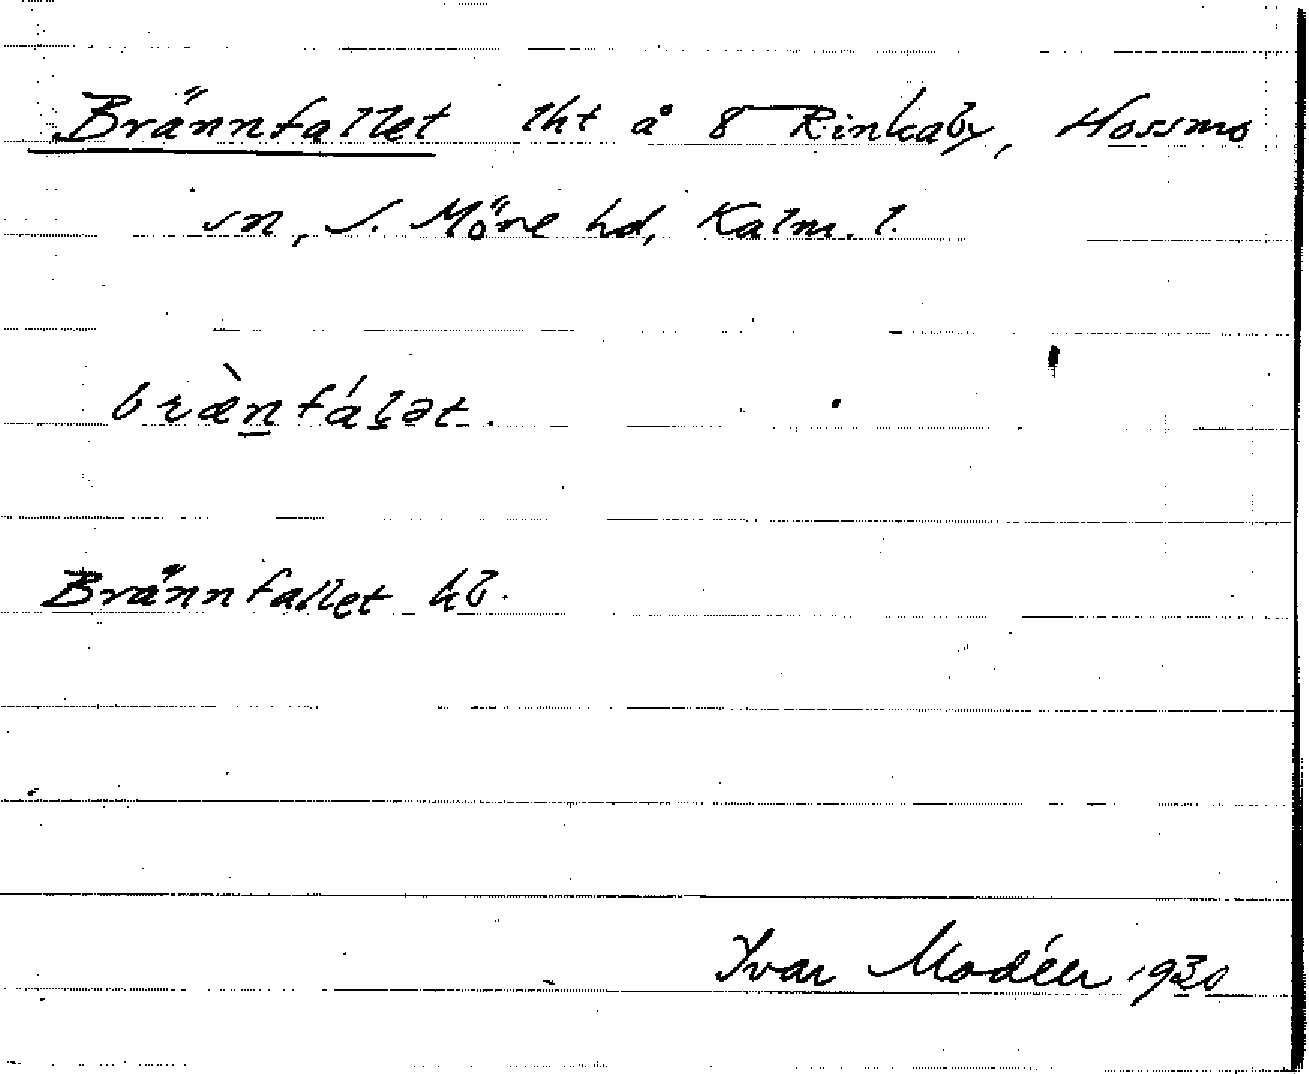 Brännfallet lht å 8 Rinkaby, Hossmo
sn, S. Möre hd, Kalm. l.
bræ̀n̲fáḷət.
Brännfallet hb.
Ivar Modéer 1930